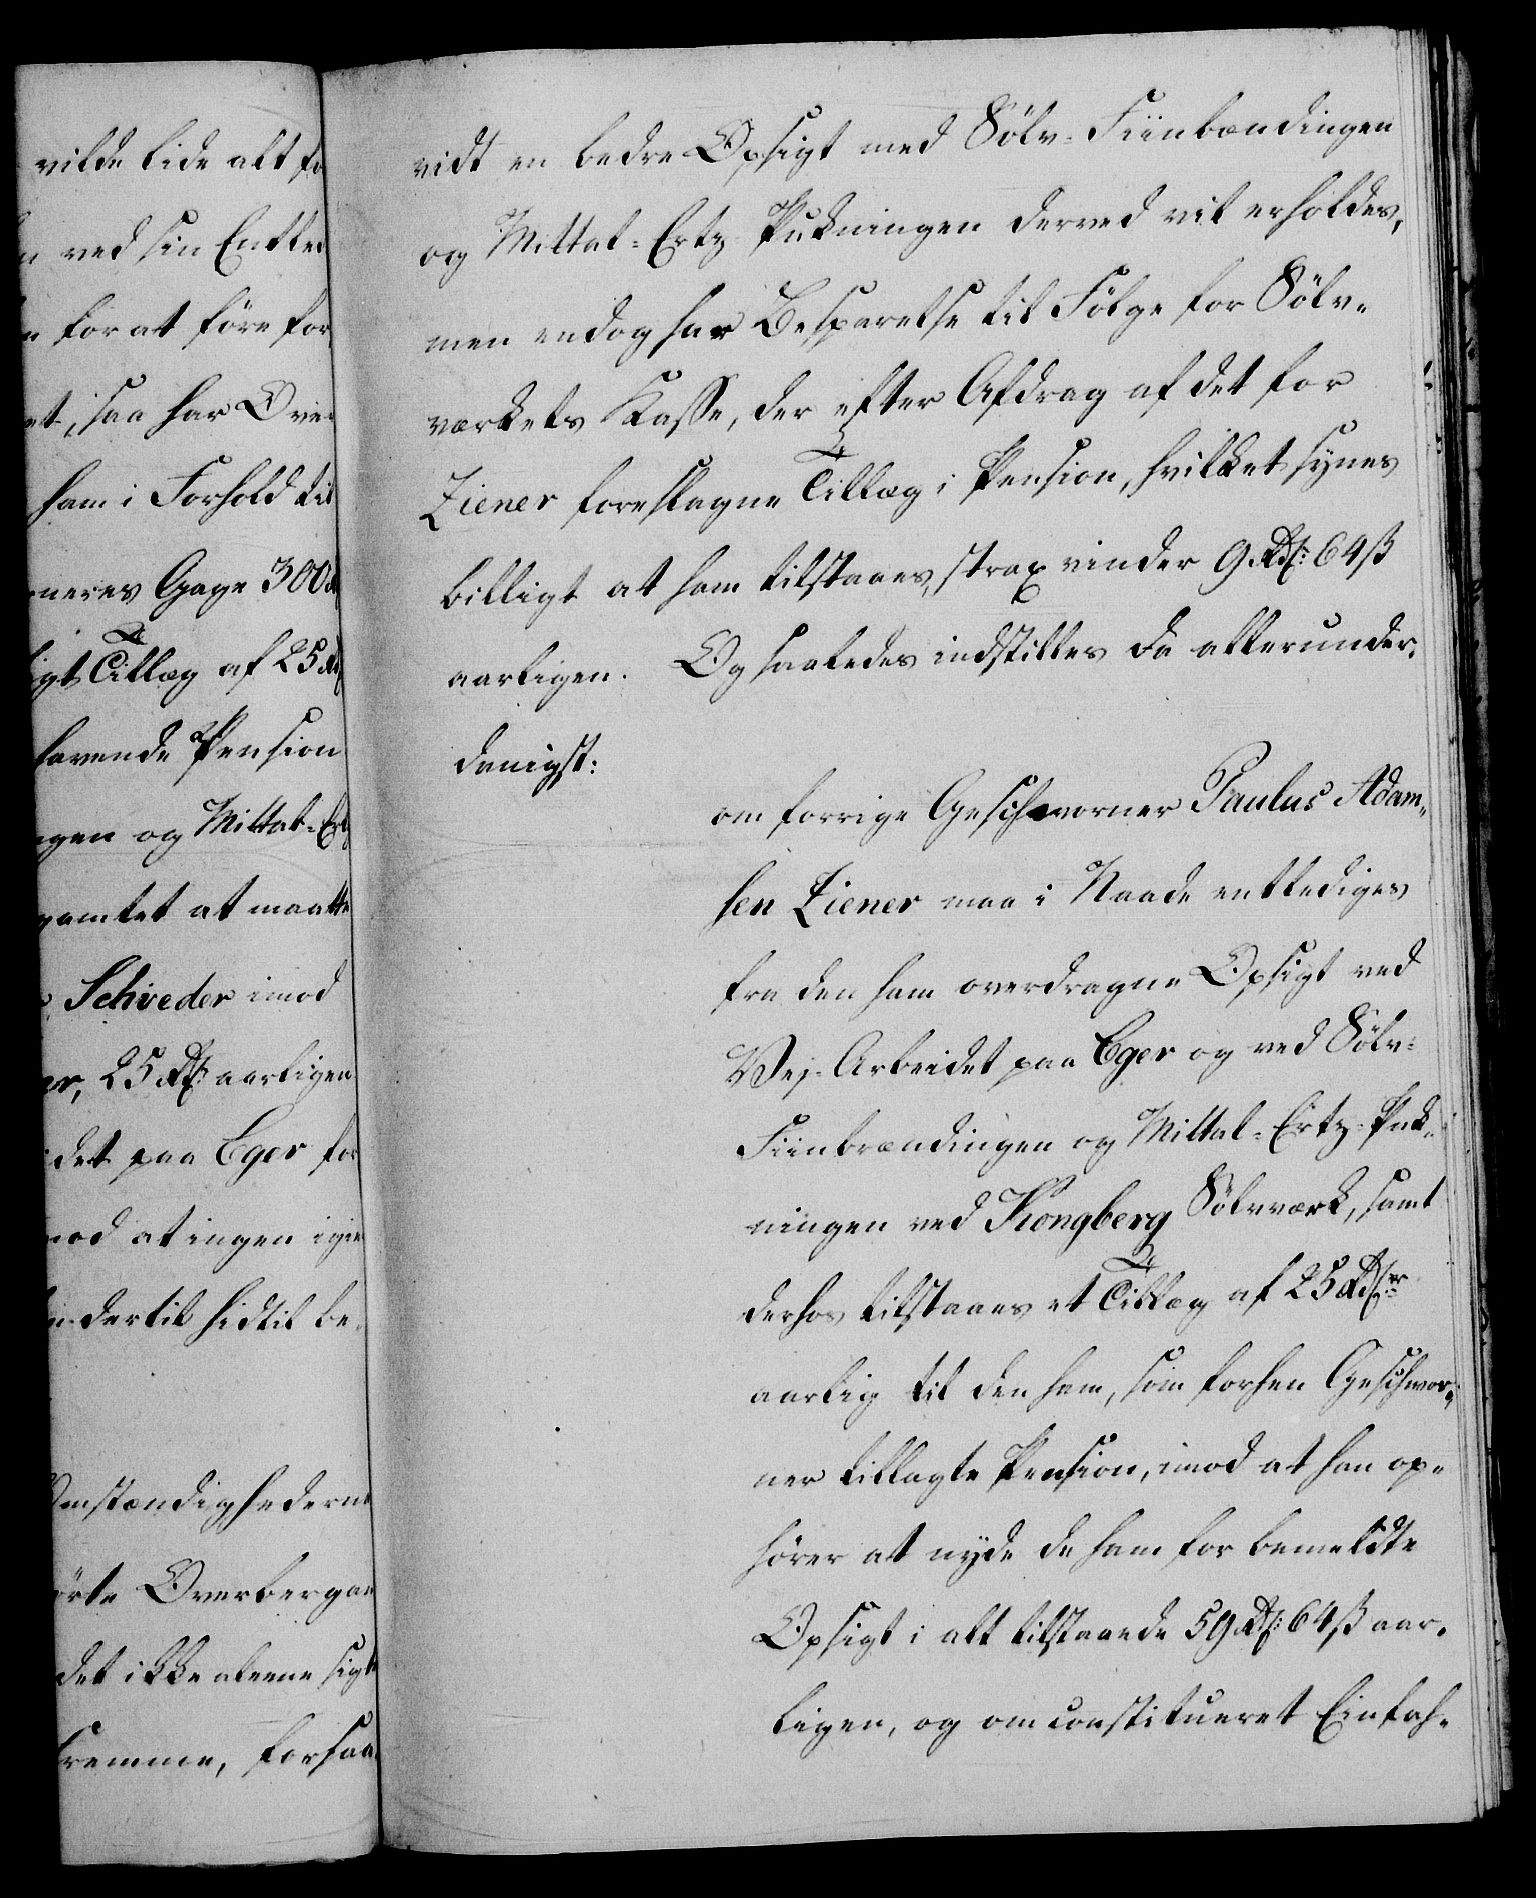 vilde lide alt fo
n ved sin Entled
n for at føre for
et, saa har Over
ham i Forhold til
neres Gage 300 Rd
igt Tillæg af 25 Rd
havende Pension
ngen og Mittel-Ertz
gamtet at maatte
Schweder imod
er, 25 Rdl: aarligen
idet paa Eger for
mod at ingen igien
n dertil hidtil be-
Omstændighederne
ørte Overbergam
det ikke aleene sigte
fremme, forsaa-
vidt en bedre Opsigt med Sölv-Fiinbrændingen
og Mittel-Ertz-Pukningen derved vil erholdes,
men endog har Besparelse til Følge for Sölv-
værkets Kasse, der efter Afdrag af det for
Ziener foreslagne Tillæg i Pension, hvilket synes
billigt at ham tilstaaes, strax vinder 9 Rdl: 64 ß
aarligen. Og saaledes indstilles da allerunder-
danigst:
om forrige Geschworner Paulus Adam-
sen Ziener maa i Naade entlediges
fra den ham overdragne Opsigt ved
Vej-Arbeidet paa Eger og ved Sölv-
Fiinbrændingen og Mittel-Ertz-Puk-
ningen ved Kongberg Sölvværk, samt
derhos tilstaaes et Tillæg af 25 Rdlr
aarlig til den ham, som forhen Geschwor-
ner tillagte Pension, imod at han op-
hører at nyde de ham for bemeldte
Opsigt i alt tilstaaede 59 Rdl: 64 ß aar-
ligen, og om constitueret Einfah-